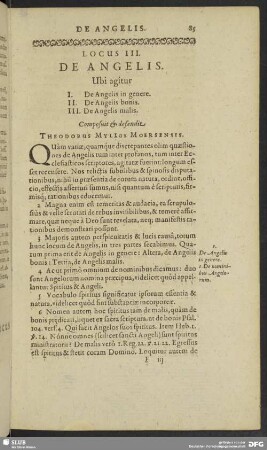 DE ANGELIS. 85
LOCUS III.
DE ANGELIS.
Ubi agitur
I. De Angelis in genere.
II. De Angelis bonis.
III. De Angelis malis.
Composuit & defendit
THEODORUS MYLIUS MOERIENSIS.
QUàm variæ, quamque discrepantes olim quæstiones
de Angelis tum inter profanos, tum inter Ecclesiasticos
scriptores, agitatæ fuerint, longum esset
recensere. Nos relictis fabulosis & spinosis disputationibus,
in præsentia de eorum natura, ordine, officio,
essentia asserturi sumus, nisi quantum è scripturis, firmisq́,
rationibus edocemur.
2 Magna enim est temeritas & audacia, ex scrupulosius
& velle scrutari de rebus invisibilibus, & temerè
quæ, nec tamen à Deo sunt revelata, neq, manifestis rationibus
demonstrari possunt.
3 Majoris autem perspicuitatis & lucis causâ, totum
hunc locum de Angelis, in tres partes secabimus. Quarum
prima erit de Angelis in genere: Altera, de Angelis
bonis: Tertia, de Angelis malis.
4 Ac ut primò omnium de nominibus dicamus: duo
sunt Angelorum nomina præcipua, videlicet quòd appellantur:
Spiritus & Angeli.
5 Vocabulo spiritus significatur ipsorum essentia &
natura, videlicet quòd sint substantiæ incorporeæ.
6 Nomen autem hoc spiritus tam de malis, quàm de
bonis prædicari, liquet ex sacra scriptura, et de bonis Psal.
104. vers. 4. Qui facit Angelos suos spiritus. Item Heb. 1.
v. 14. Nonne omnes (scilicet sancti Angeli) sunt spiritus
ministratorii? De malis verò 1. Reg. 22. v. 21. 22. Egressus
est spiritus & stetit coram Domino. Loquitur autem de
F iij
1.
De Angelis
in genere.
1 De nominibus
Angelorum.